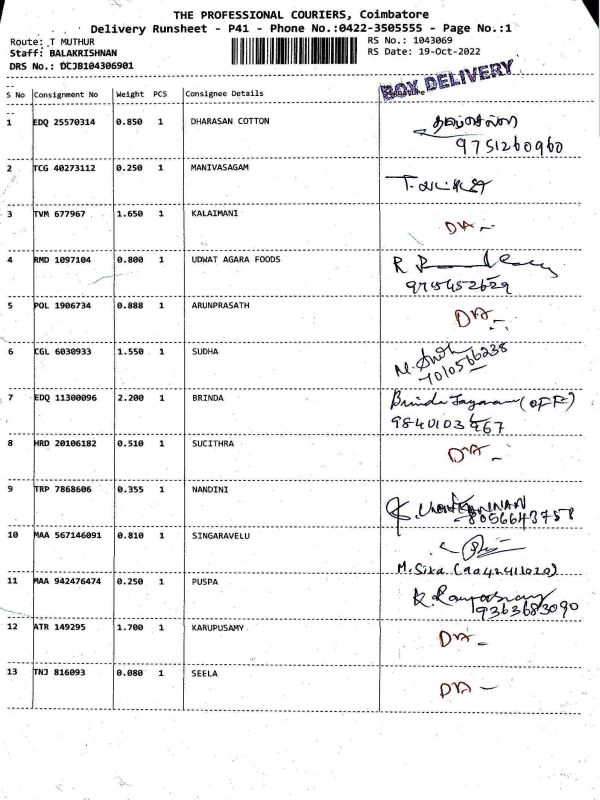 THE PROFESSIONAL COURIERS, Coimbatore
Delivery Runsheet - P41 - Phone No.:0422-3505555 - Page No.:1
Route: T MUTHUR RS No.: 1043069
Staff: BALAKRISHNAN RS Date: 19-Oct-2022
DRS No.: DCJB104306901
BOX DELIVERY
S No Consignment No Weight PCS Consignee Details
1 EDQ 25570314 0.850 1 DHARASAN COTTON
9751260960
2 TCG 40273112 0.250 1 MANIVASAGAM
3 TVM 677967 1.650 1 KALAIMANI DA -
4 RMD 1097104 0.800 1 UDWAT AGARA FOODS R
9715452629
5 POL 1906734 0.888 1 ARUNPRASATH DA -
6 CGL 6030933 1.550 1 SUDHA M.
7010566238
7 EDQ 11300096 2.200 1 BRINDA Brinda Jayaram (OFF)
8 HRD 20106182 0.510 1 SUCITHRA DA -
9 TRP 7868606 0.355 1 NANDINI
8056643758
10 MAA 567146091 0.810 1 SINGARAVELU
M. Siva (9042411020)
11 MAA 942476474 0.250 1 PUSPA
9363683090
12 ATR 149295 1.700 1 KARUPUSAMY DA -
13 TNJ 816093 0.080 1 SEELA DA -